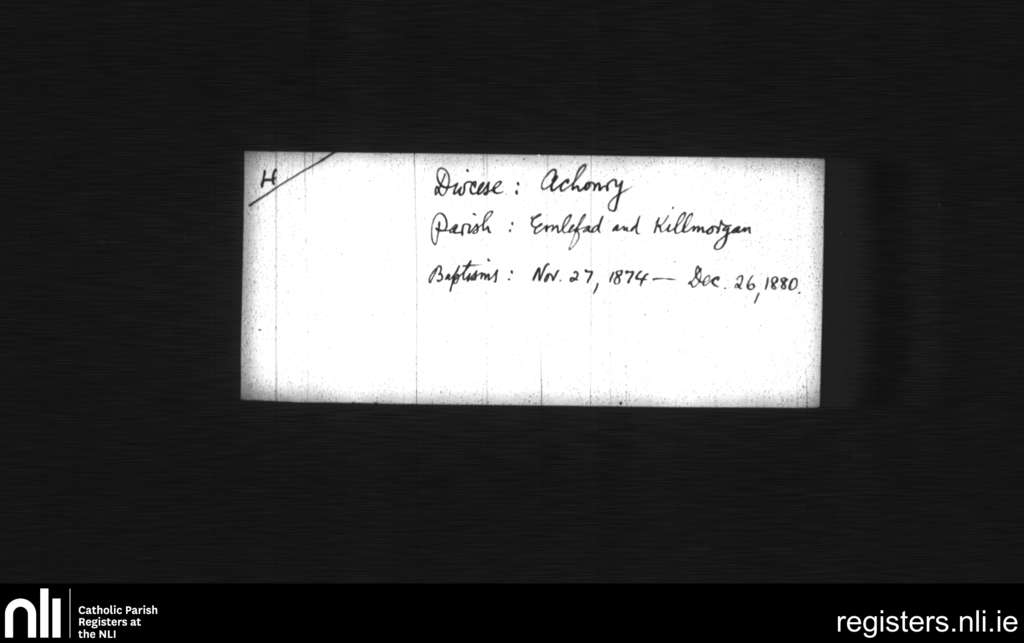 H
Diocese : Achonry
Parish : Emlefad and Killmorgan
Baptisms : Nov. 27, 1874 — Dec. 26, 1880.
nli
Catholic Parish
Registers at
the NLI
registers.nli.ie